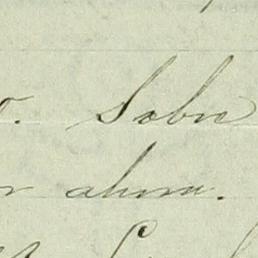 o. Sobre
r ahora.